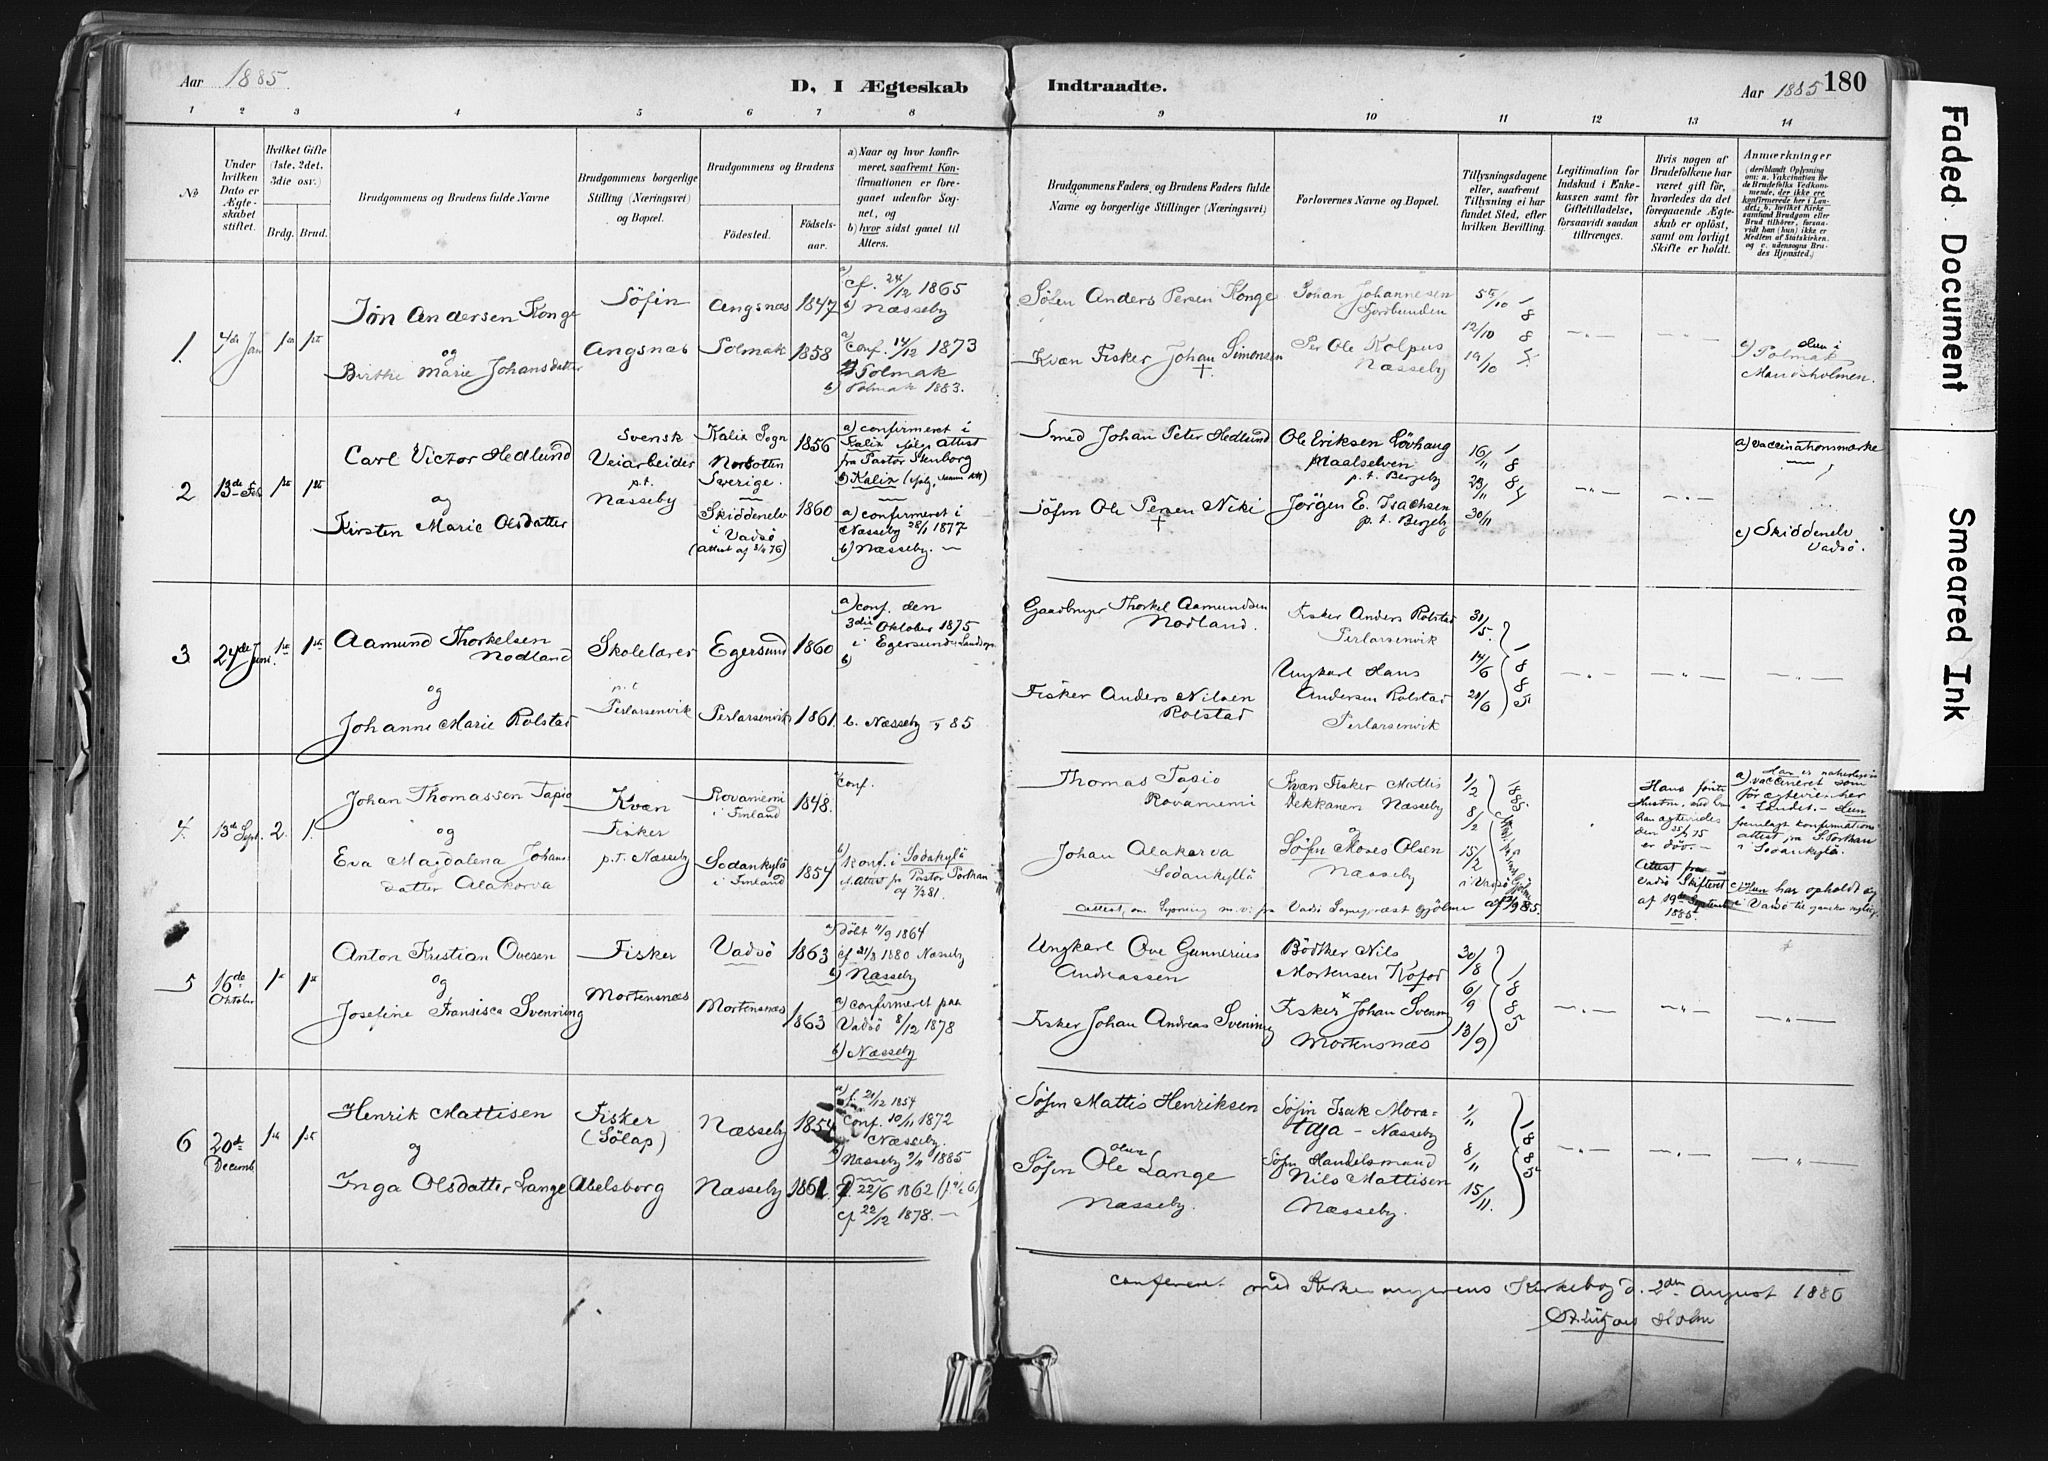 Aar 1885
D, I Ægteskab
Indtraadte.
Aar 1885
180
Faded Document
Smeared Ink
1 2 3 4 5 6 7 8 9 10 11 12 13 14
№
Under hvilken Dato er Ægteskabet stiftet.
Hvilket Gifte (1ste, 2det, 3die osv.)
Brdg. Brud.
Brudgommens og Brudens fulde Navne
Brudgommens borgerlige Stilling (Næringsvei) og Bopæl.
Brudgommens og Brudens
Fødested.
Fødselsaar.
a) Naar og hvor konfirmeret, saafremt Konfirmationen er foregaaet udenfor Sognet, og
b) hvor sidst gaaet til Alters.
Brudgommens Faders, og Brudens Faders fulde Navne og borgerlige Stillinger (Næringsvei)
Forlovernes Navne og Bopæl.
Tillysningsdagene eller, saafremt Tillysning ei har fundet Sted, efter hvilken Bevilling.
Legitimation for Indskud i Enkekassen samt for Giftetilladelse, forsaavidt saadan tiltrænges.
Hvis nogen af Brudefolkene har været gift før, hvorledes da det foregaaende Ægteskab er opløst, samt om lovligt Skifte er holdt.
Anmærkninger
(deriblandt Oplysning om: a. Vakcination for de Brudefolks Vedkommende, der ikke ere konfirmerede her i Landet; b. hvilket Kirkesamfund Brudgom eller Brud tilhører, forsaavidt han (hun) ikke er Medlem af Statskirken, og c. udensogns Brudes Hjemsted.)
1
4de Jan
1ste 1ste
Jøn Andersen Konge
og
Birthe Marie Johansdatter
Søfin
Angsnæs
Angsnæs 1847
Polmak 1858
a) cf. 24/12 1865
b) Næsseby
a) Conf. 14/12 1873
Polmak
b) Polmak 1883.
Søfin Anders Persen Konge
Kvæn Fisker Johan Simonsen
†
Johan Johannesen
Per Ole Kolpus
Næsseby
5te/10
12/10
19/10
c) Hun i
Polmak
Mandsholmen.
2
13de Feb
1ste 1ste
Carl Victor Hedlund
og
Kirsten Marie Olsdatter
Svensk
Veiarbeider
p.t.
Næsseby
Kalix Sogn
Norbotten
Sverige.
1856
Skiddenelv
i Vadsø
1860
a) confirmeret i
Kalix ifølge Attest
fra Pastor Stenborg
b) Kalix
a) confirmeret i
Næsseby 28/1 1877
b) Næsseby.
Smed Johan Peter Hedlund
Søfin Ole Persen Niki
†
Ole Eriksen Løvhaug
Maalselven
p.t. Bergeby
Jørgen E. Isachsen
p.t. Bergeby
16/11
23/11
30/11
a) vaccinationsmærke
c) Skiddenelv
Vadsø.
3
24de Juni
1ste 1ste
Aamund Thorkelsen
Nodland
og
Johanne Marie Rolstad
Skolelærer
p.t.
Perlarsenvik
Egersund 1860
Perlarsenvik 1861.
a) conf. den
3die Oktober 1875
i Egersund Landsogn
b)
b. Næsseby 85
Gaardbruger Thorkel Aamundsen
Nodland.
Fisker Anders Nilsen
Rolstad
Fisker Anders Rolstad
Perlarsenvik
Ungkarl Hans
Andersen Rolstad
Perlarsenvik
31/5.
14/6
21/6
1885
4.
13de Sept.
2. 1.
Johan Thomassen Tapio
og
Eva Magdalena Johansdatter Alakorva
Kvæn
Fisker
p.t. Næsseby
Rovaniemi
i Finland
1848.
Sodankylä
i Finland
1854
Conf.
Konf. i Sodakylä
Attest fra Pastor Porthan
Thomas Tapio
Rovaniemi
Johan Alakorva
Sodankyllä
Kvæn Fisker Mattis
Pekkanen Næsseby
Søfin Moses Olsen
Næsseby
1/2
8/2
15/2
i Vadsø
1885
Hans første
Hustru, med hvem
han ægteviedes
er død.
Attest fra
Vadsø Skifteret
af 19de September
1885.
a) Han er
vaccineret som
før ægteviet her
i Landet. Hun
fremlagt konfirmations
attest fra S. Porthan
i Sodankylä.
c) Hun har opholdt sig
i Vadsø
5
16de
Oktober
1ste 1ste
Anton Kristian Ovesen
og
Josefine Fransisca Svenning
Fisker
Mortensnæs
Vadsø 1863
Mortensnæs 1863
a) Døbt 11/9 1864
1880 Næsseby
b) Næsseby
a) confirmeret paa
Vadsø 8/12 1878
b) Næsseby
Ungkarl Ove Gunnerius
Andreassen
Fisker Johan Andreas Svenning
Bødker Nils
Mortensen Kofod
Fisker Johan Svenning
Mortensnæs
30/8
6/9
13/9
1885
6
20de
Decemb
1ste 1ste
Henrik Mattisen
og
Inga Olsdatter Lange
Fisker
(Sølap)
Abelsborg
Næsseby 1854
Næsseby 1862.
f. 21/12 1854
Conf. 10/11 1872
Næsseby.
b) Næsseby 1885
f. 22/6 1862
cf 22/12 1878.
Søfin Mattis Henriksen
Søfin Ole Olsen Lange
Næsseby.
Søfin Isak Morataja – Næsseby
Søfin Handelsmand
Nils Mattisen
Næsseby.
1/11
8/11
15/11.
1885
Confereret med Kirkesangerens Kirkebog d. 2den August 1886
Holm